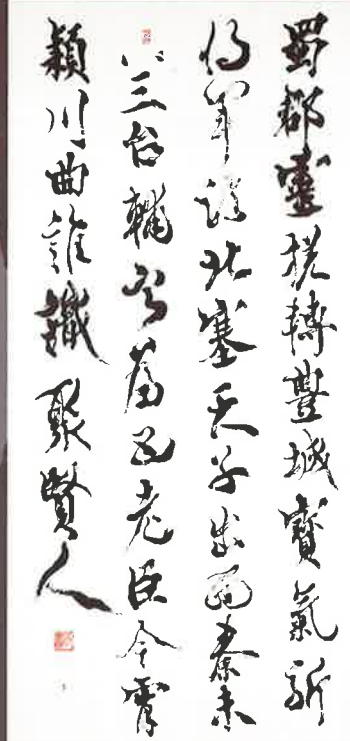 蜀郡靈槎轉豐城寶氣新
將軍臨北塞天子出西秦未
三台輔寧為五老臣今宵
潁川曲誰識聚賢人